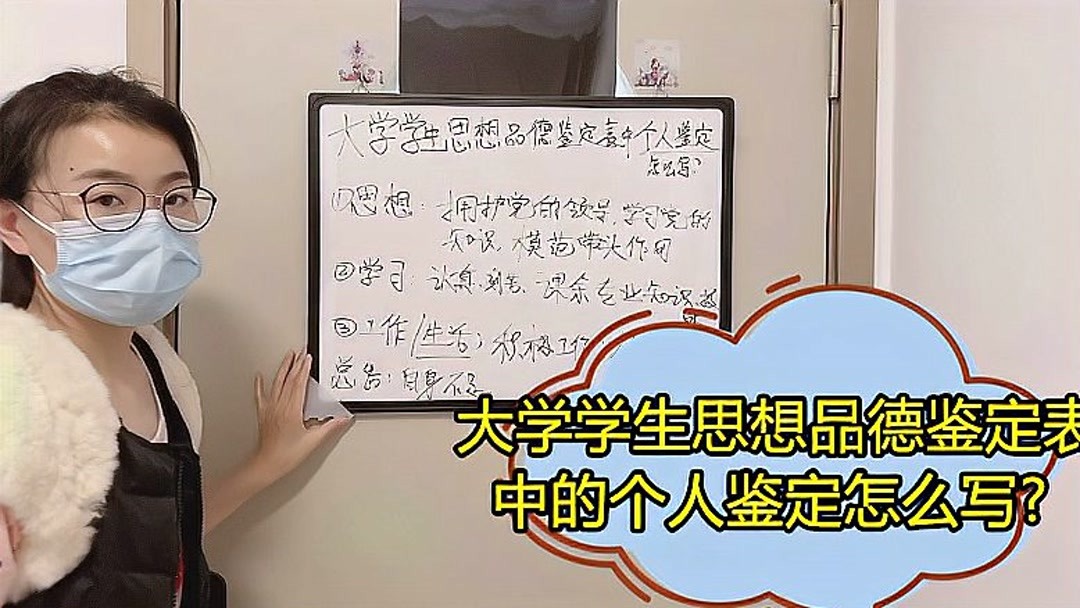 大学学生思想品德鉴定表中个人鉴定
怎么写?
①思想：拥护党的领导，学习党的
知识，模范带头作用
②学习：认真刻苦，课余专业知识
③工作(生活)积极工作
总结：自身不足
大学学生思想品德鉴定表
中的个人鉴定怎么写?